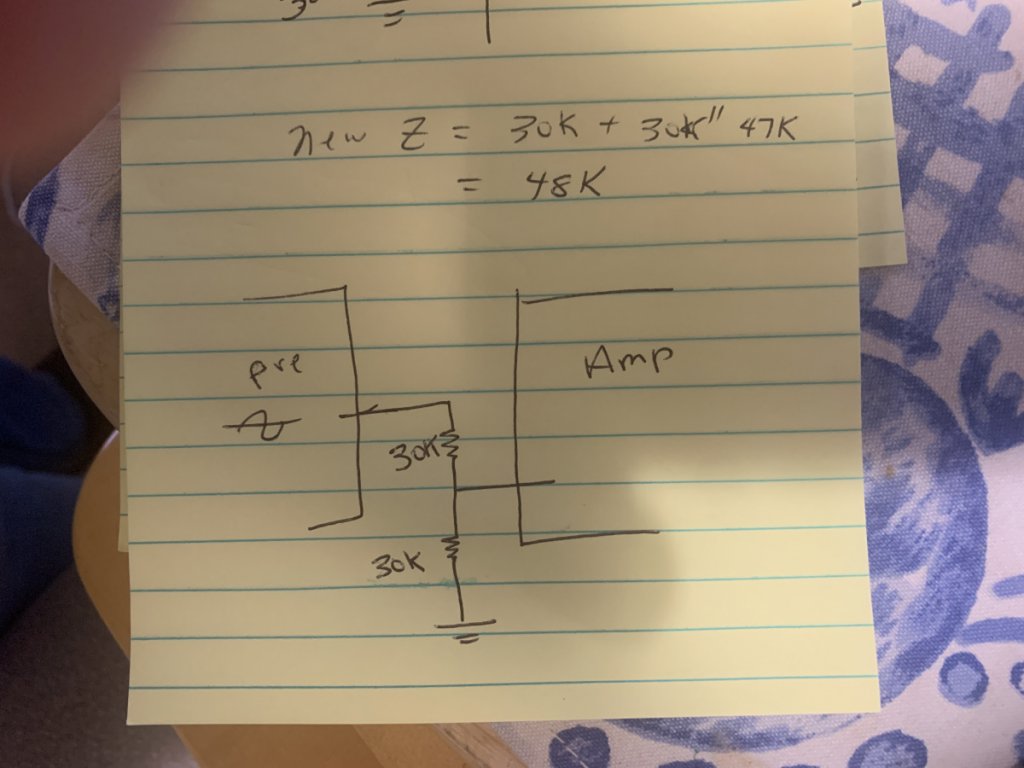 new Z = 30K + 30K" 47K
= 48K
pre
Amp
30K
30K